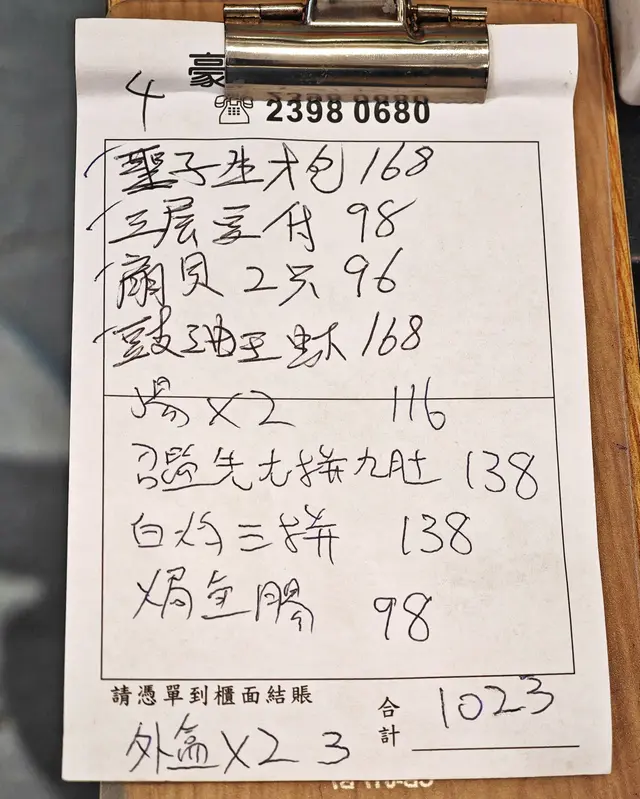 4
豪
☎ 2398 0680
聖子生大包 168
三层豆付 98
扇贝 2只 96
豉油王 168
湯 X2 116
九肚 138
白灼三拼 138
焗魚腸 98
請憑單到櫃面結賬
合計 1023
外盒X2 3